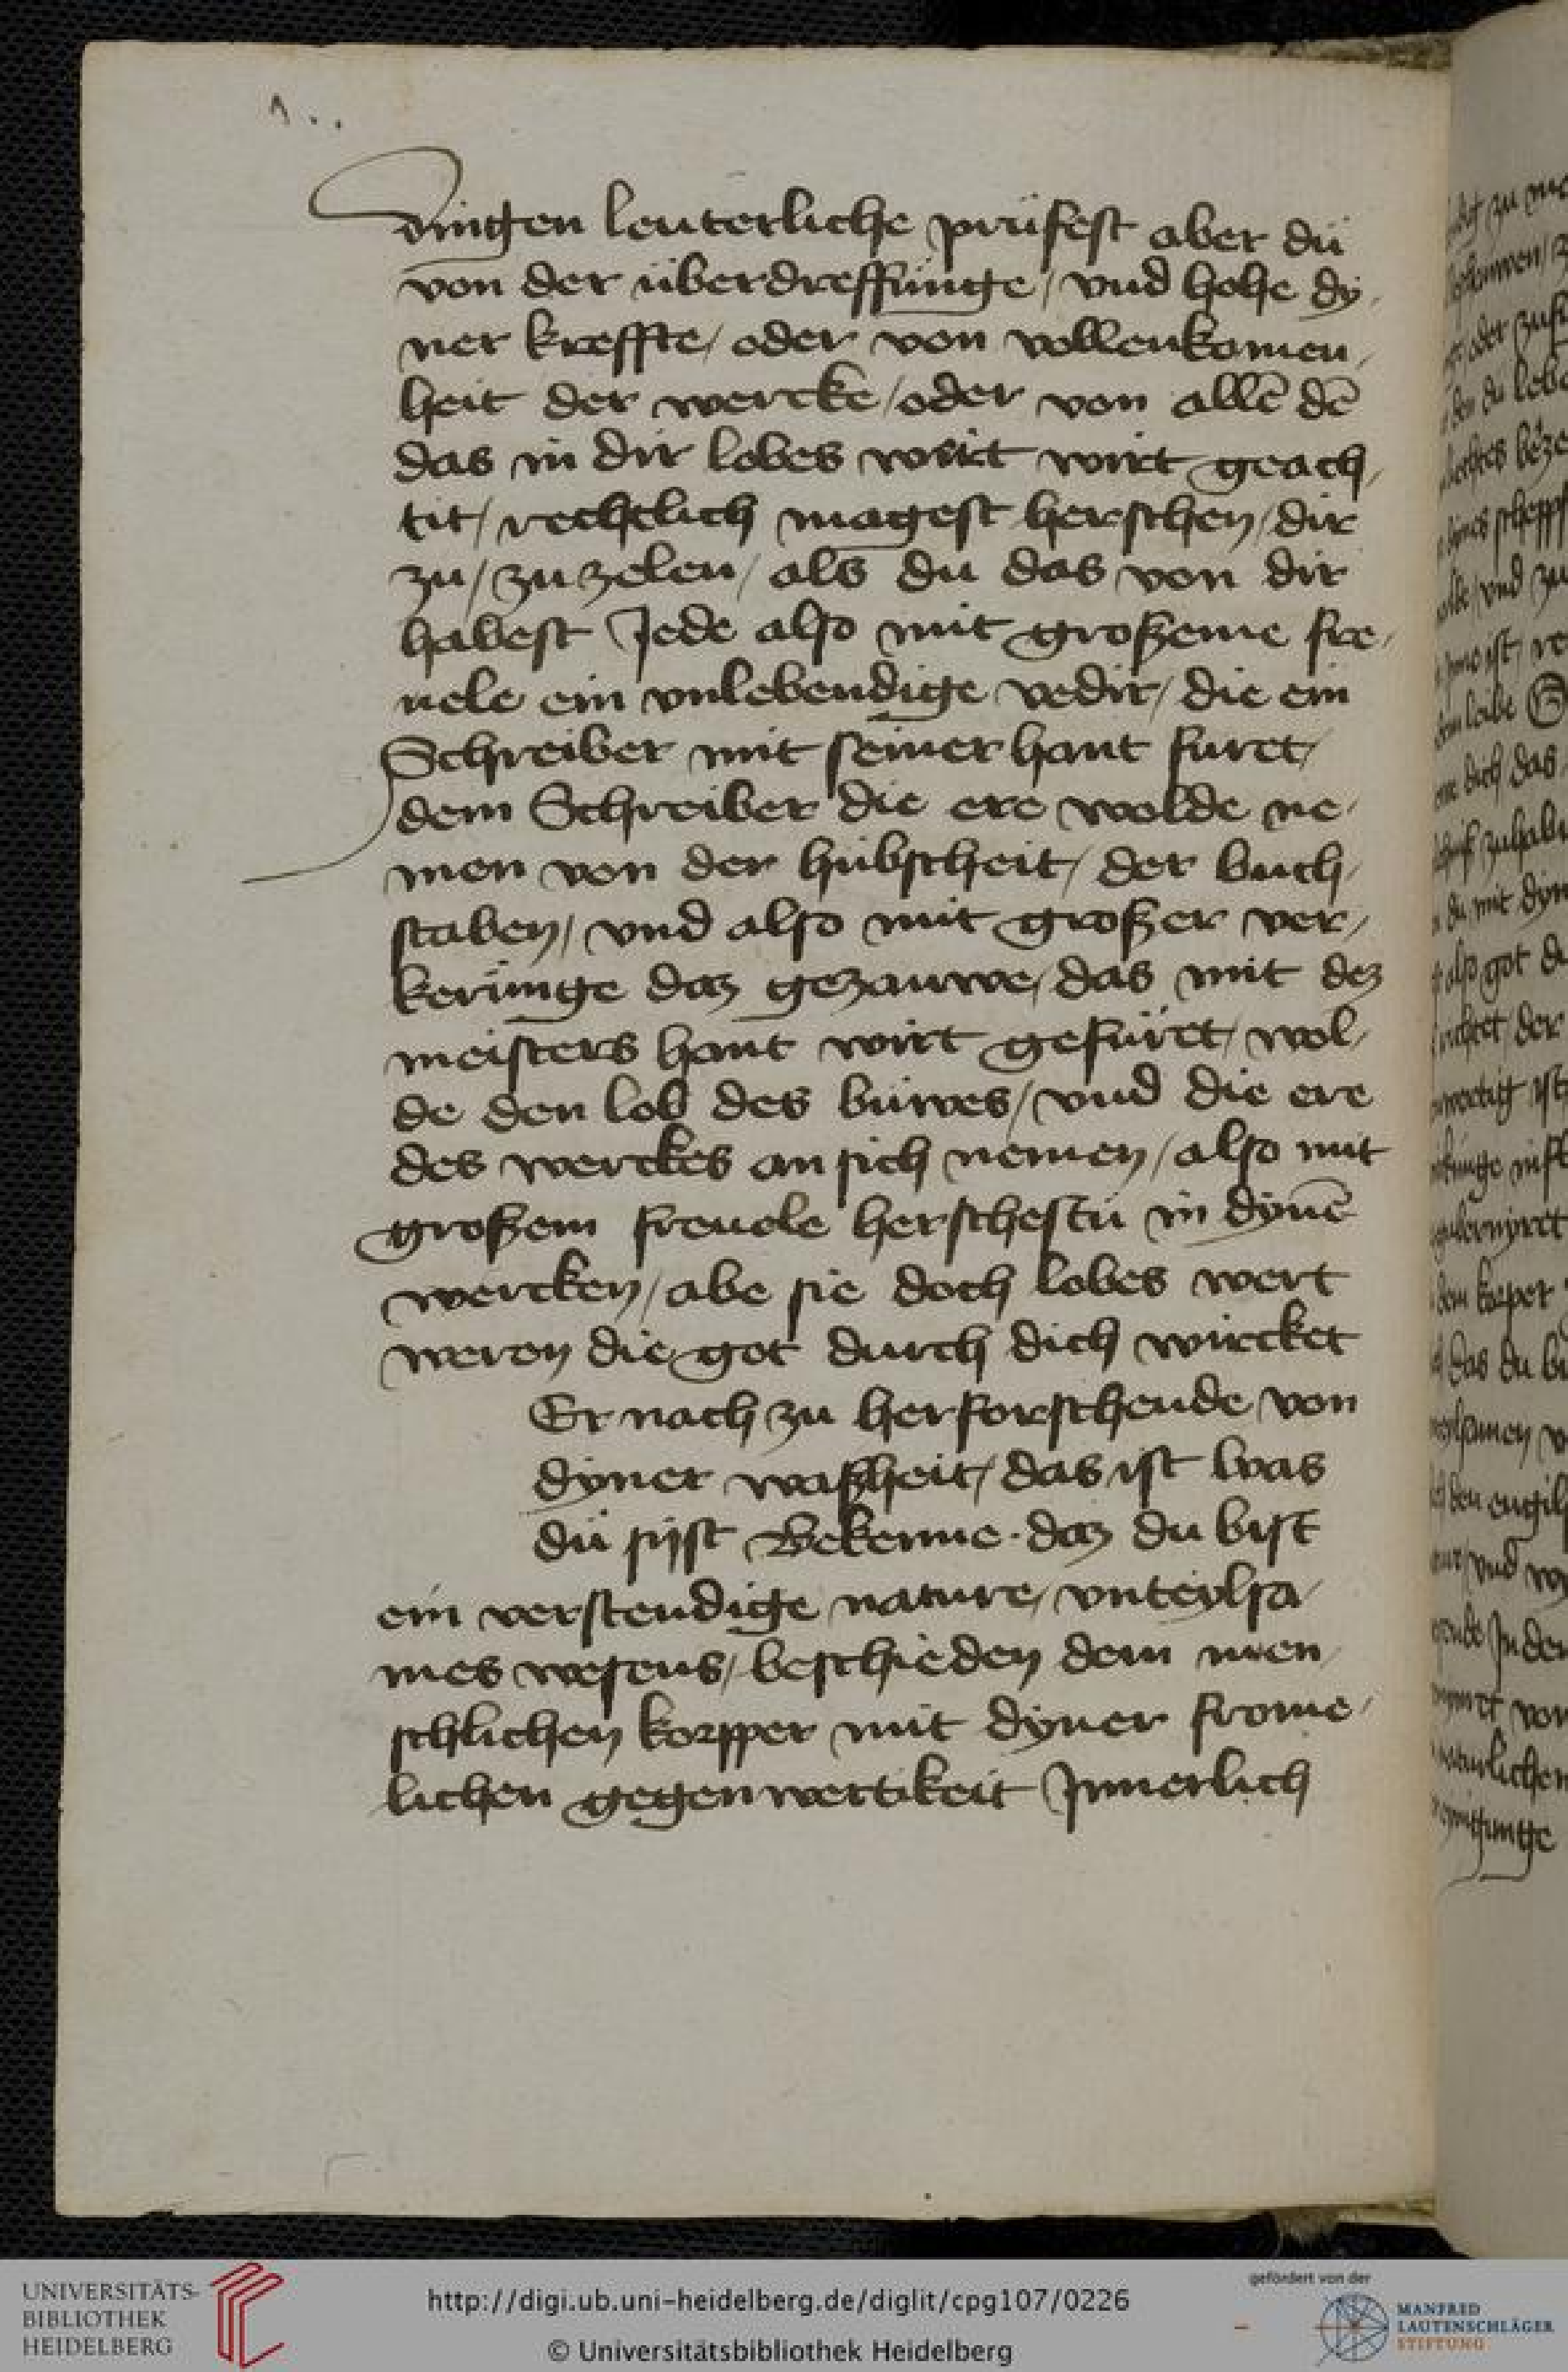 dingen leuterliche prüfest aber dü
von der überdreffünge / vnd hohe dy,
ner kreffte / oder von vollenkomen,
heit der wercke / oder von allē dē
das in dir lobes wirt wirt geach,
tit / rechtlich magest herschen / dir
zu / zu zelen / als du das von dir
habest Jede also mit großeme fre,
uele ein vnlebendige vedir / die ein
Schreiber mit seiner hant furet /
dem Schreiber die ere wolde ne,
men von der hübscheit / der buch,
staben / vnd also mit großer ver,
kerünge daz gezauwe / das mit dez
meisters hant wirt gefüret / wol,
de den lob des büwes / vnd die ere
des werckes an sich nemen / also mit
großem freuele herschestu in dynē
wercken / abe sie doch lobes wert
weren die got durch dich würcket
Er nach zu herforschende von
dyner waßheit / das ist was
dü sijst Bekenne · daz du bist
ein verstendige nature / vnteylsa,
mes wesens / beschieden dem men,
schlichen korpper mit dyner frome,
lichen gegenwertikeit Jnnerlich
UNIVERSITÄTS-
BIBLIOTHEK
HEIDELBERG
http://digi.ub.uni-heidelberg.de/diglit/cpg107/0226
© Universitätsbibliothek Heidelberg
gefördert von der
MANFRED
LAUTENSCHLÄGER
STIFTUNG